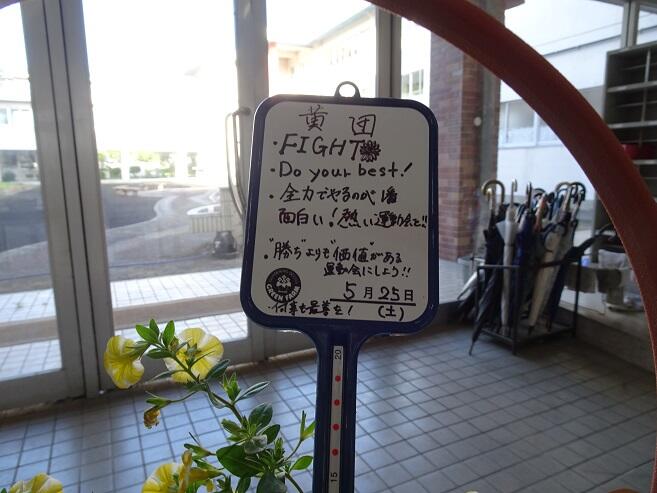 黄団
・FIGHT
・Do your best!
・全力でやるのが1番
面白い!熱い運動会を!!
"勝ち"よりも"価値"がある
運動会にしよう!!
GREEN FARM
5月25日
(土)
・何事も最善を!
20
15